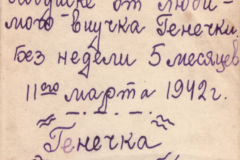 бабушке от люби-
мого внучка Генечки.
Без недели 5 месяцев
11ого марта 1942 г.
Генечка